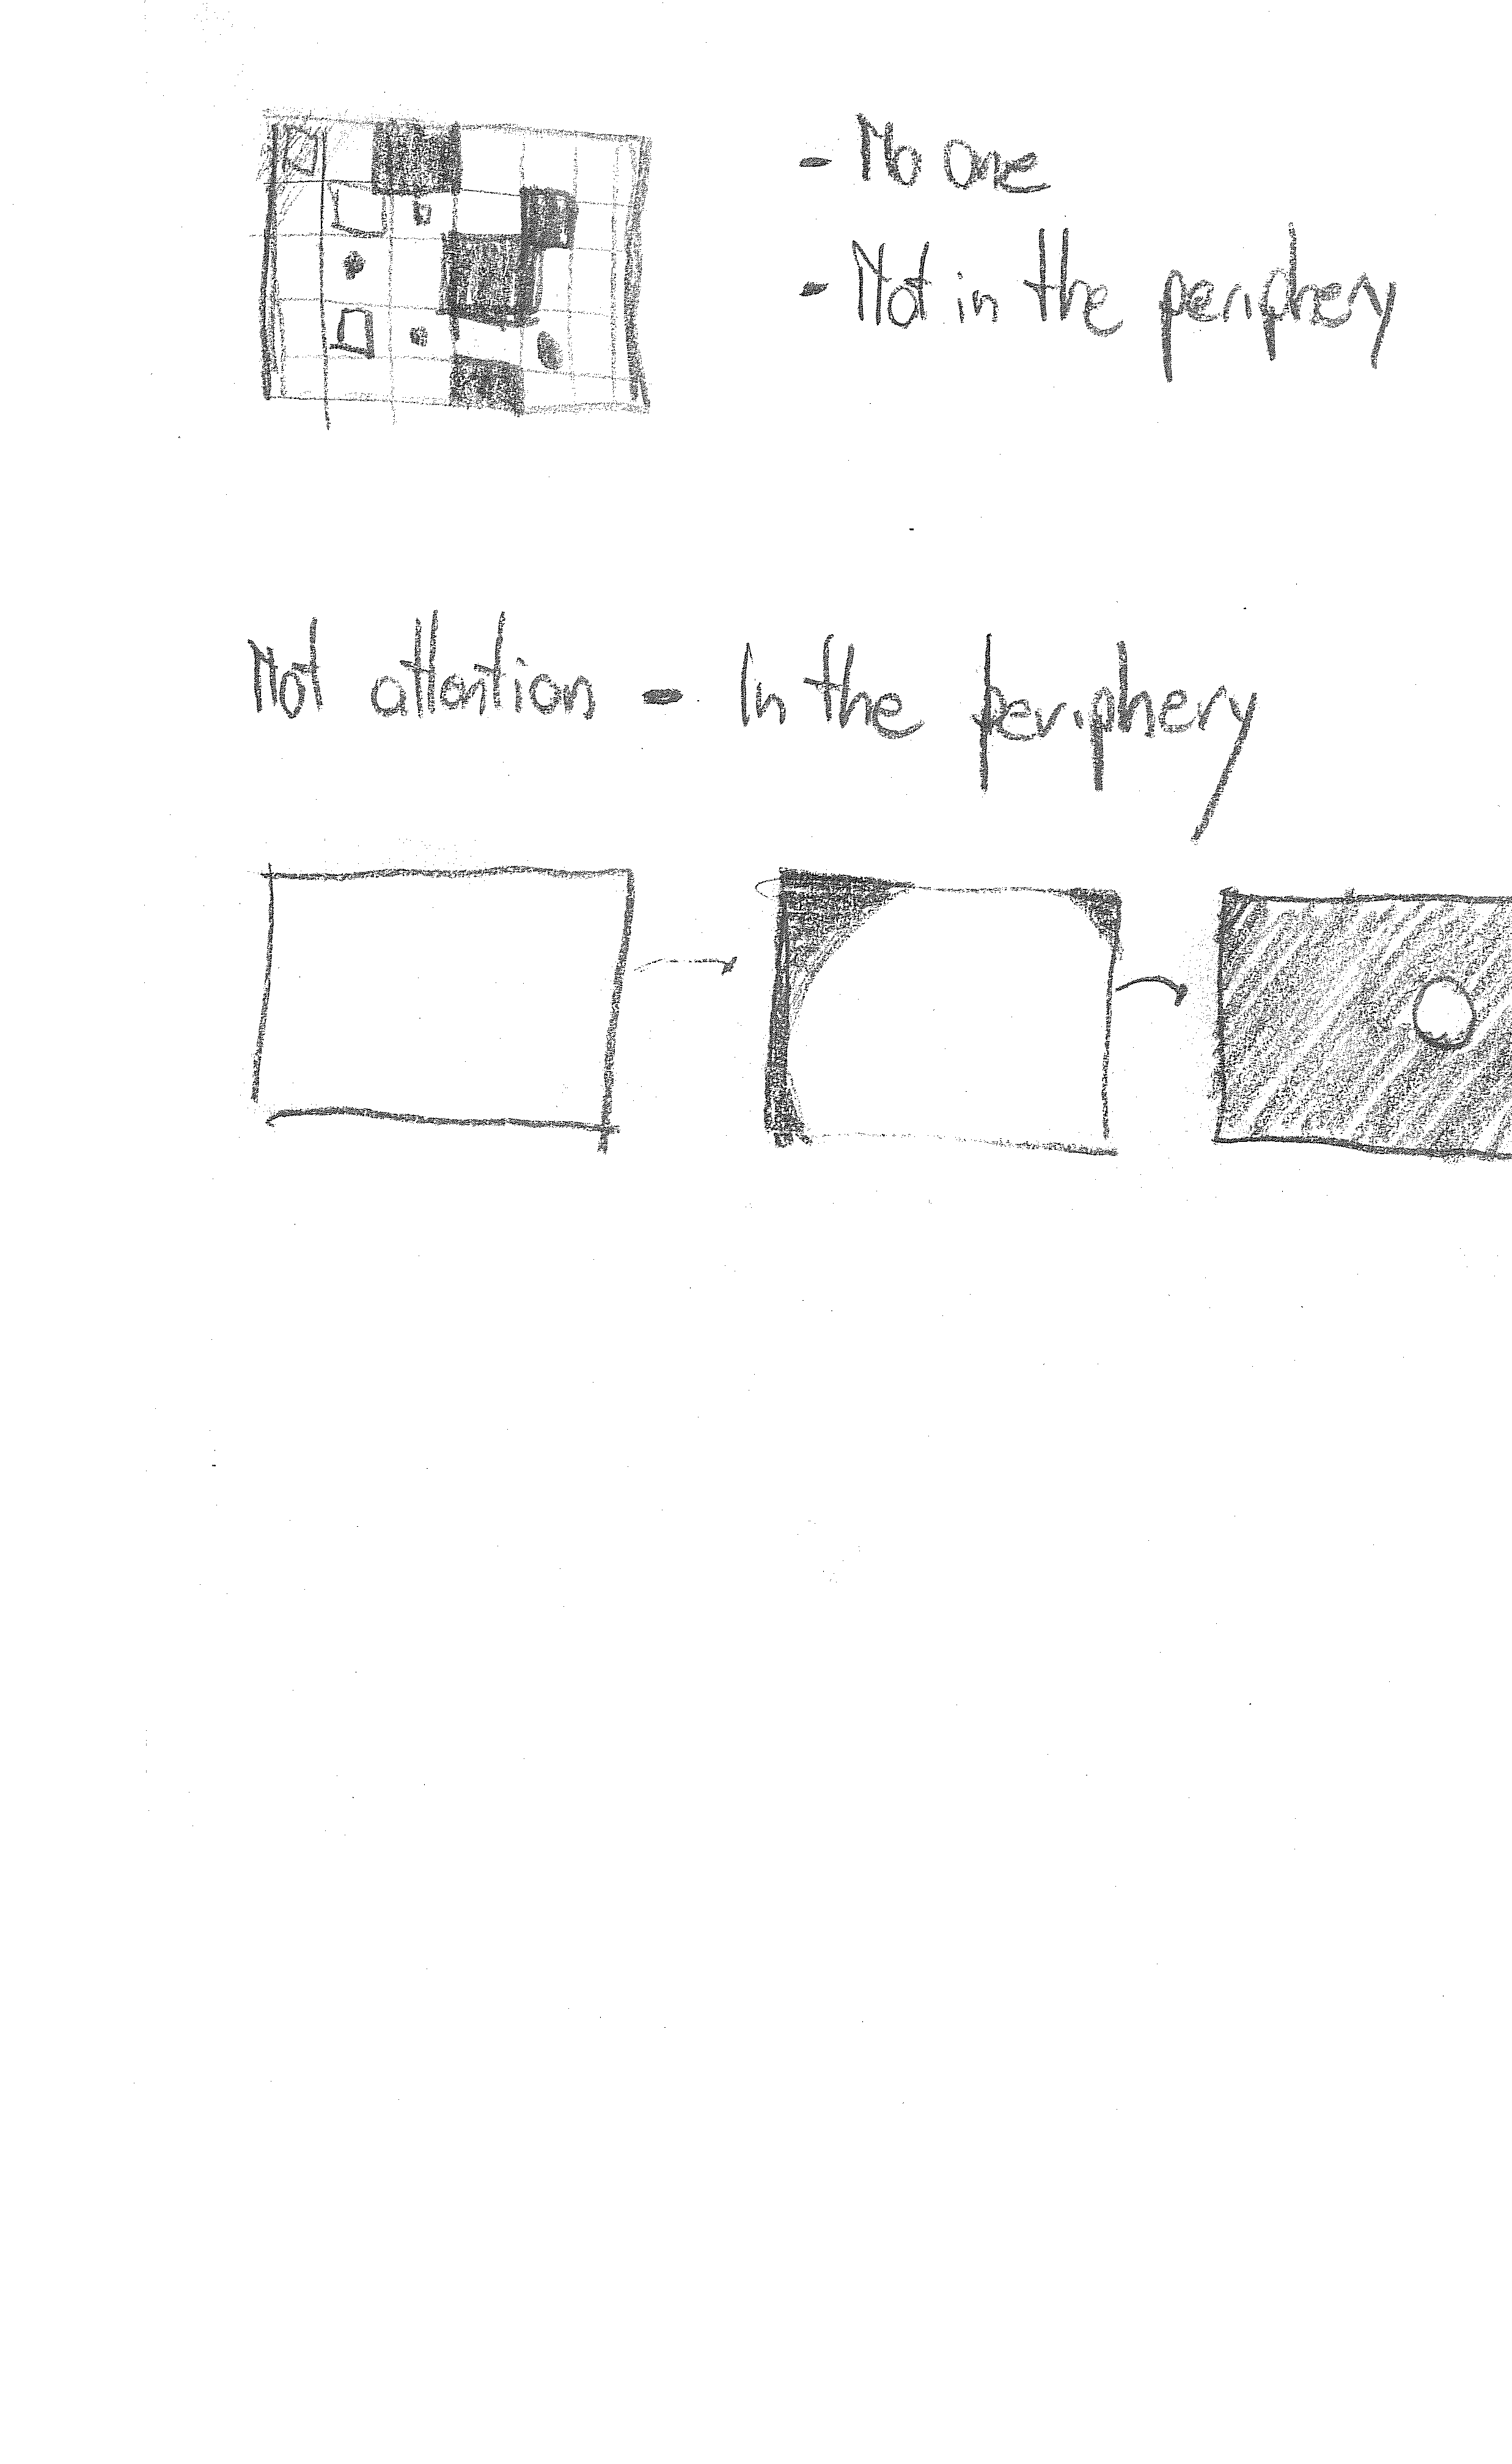 - No one
- Not in the periphery
Not attention - In the periphery